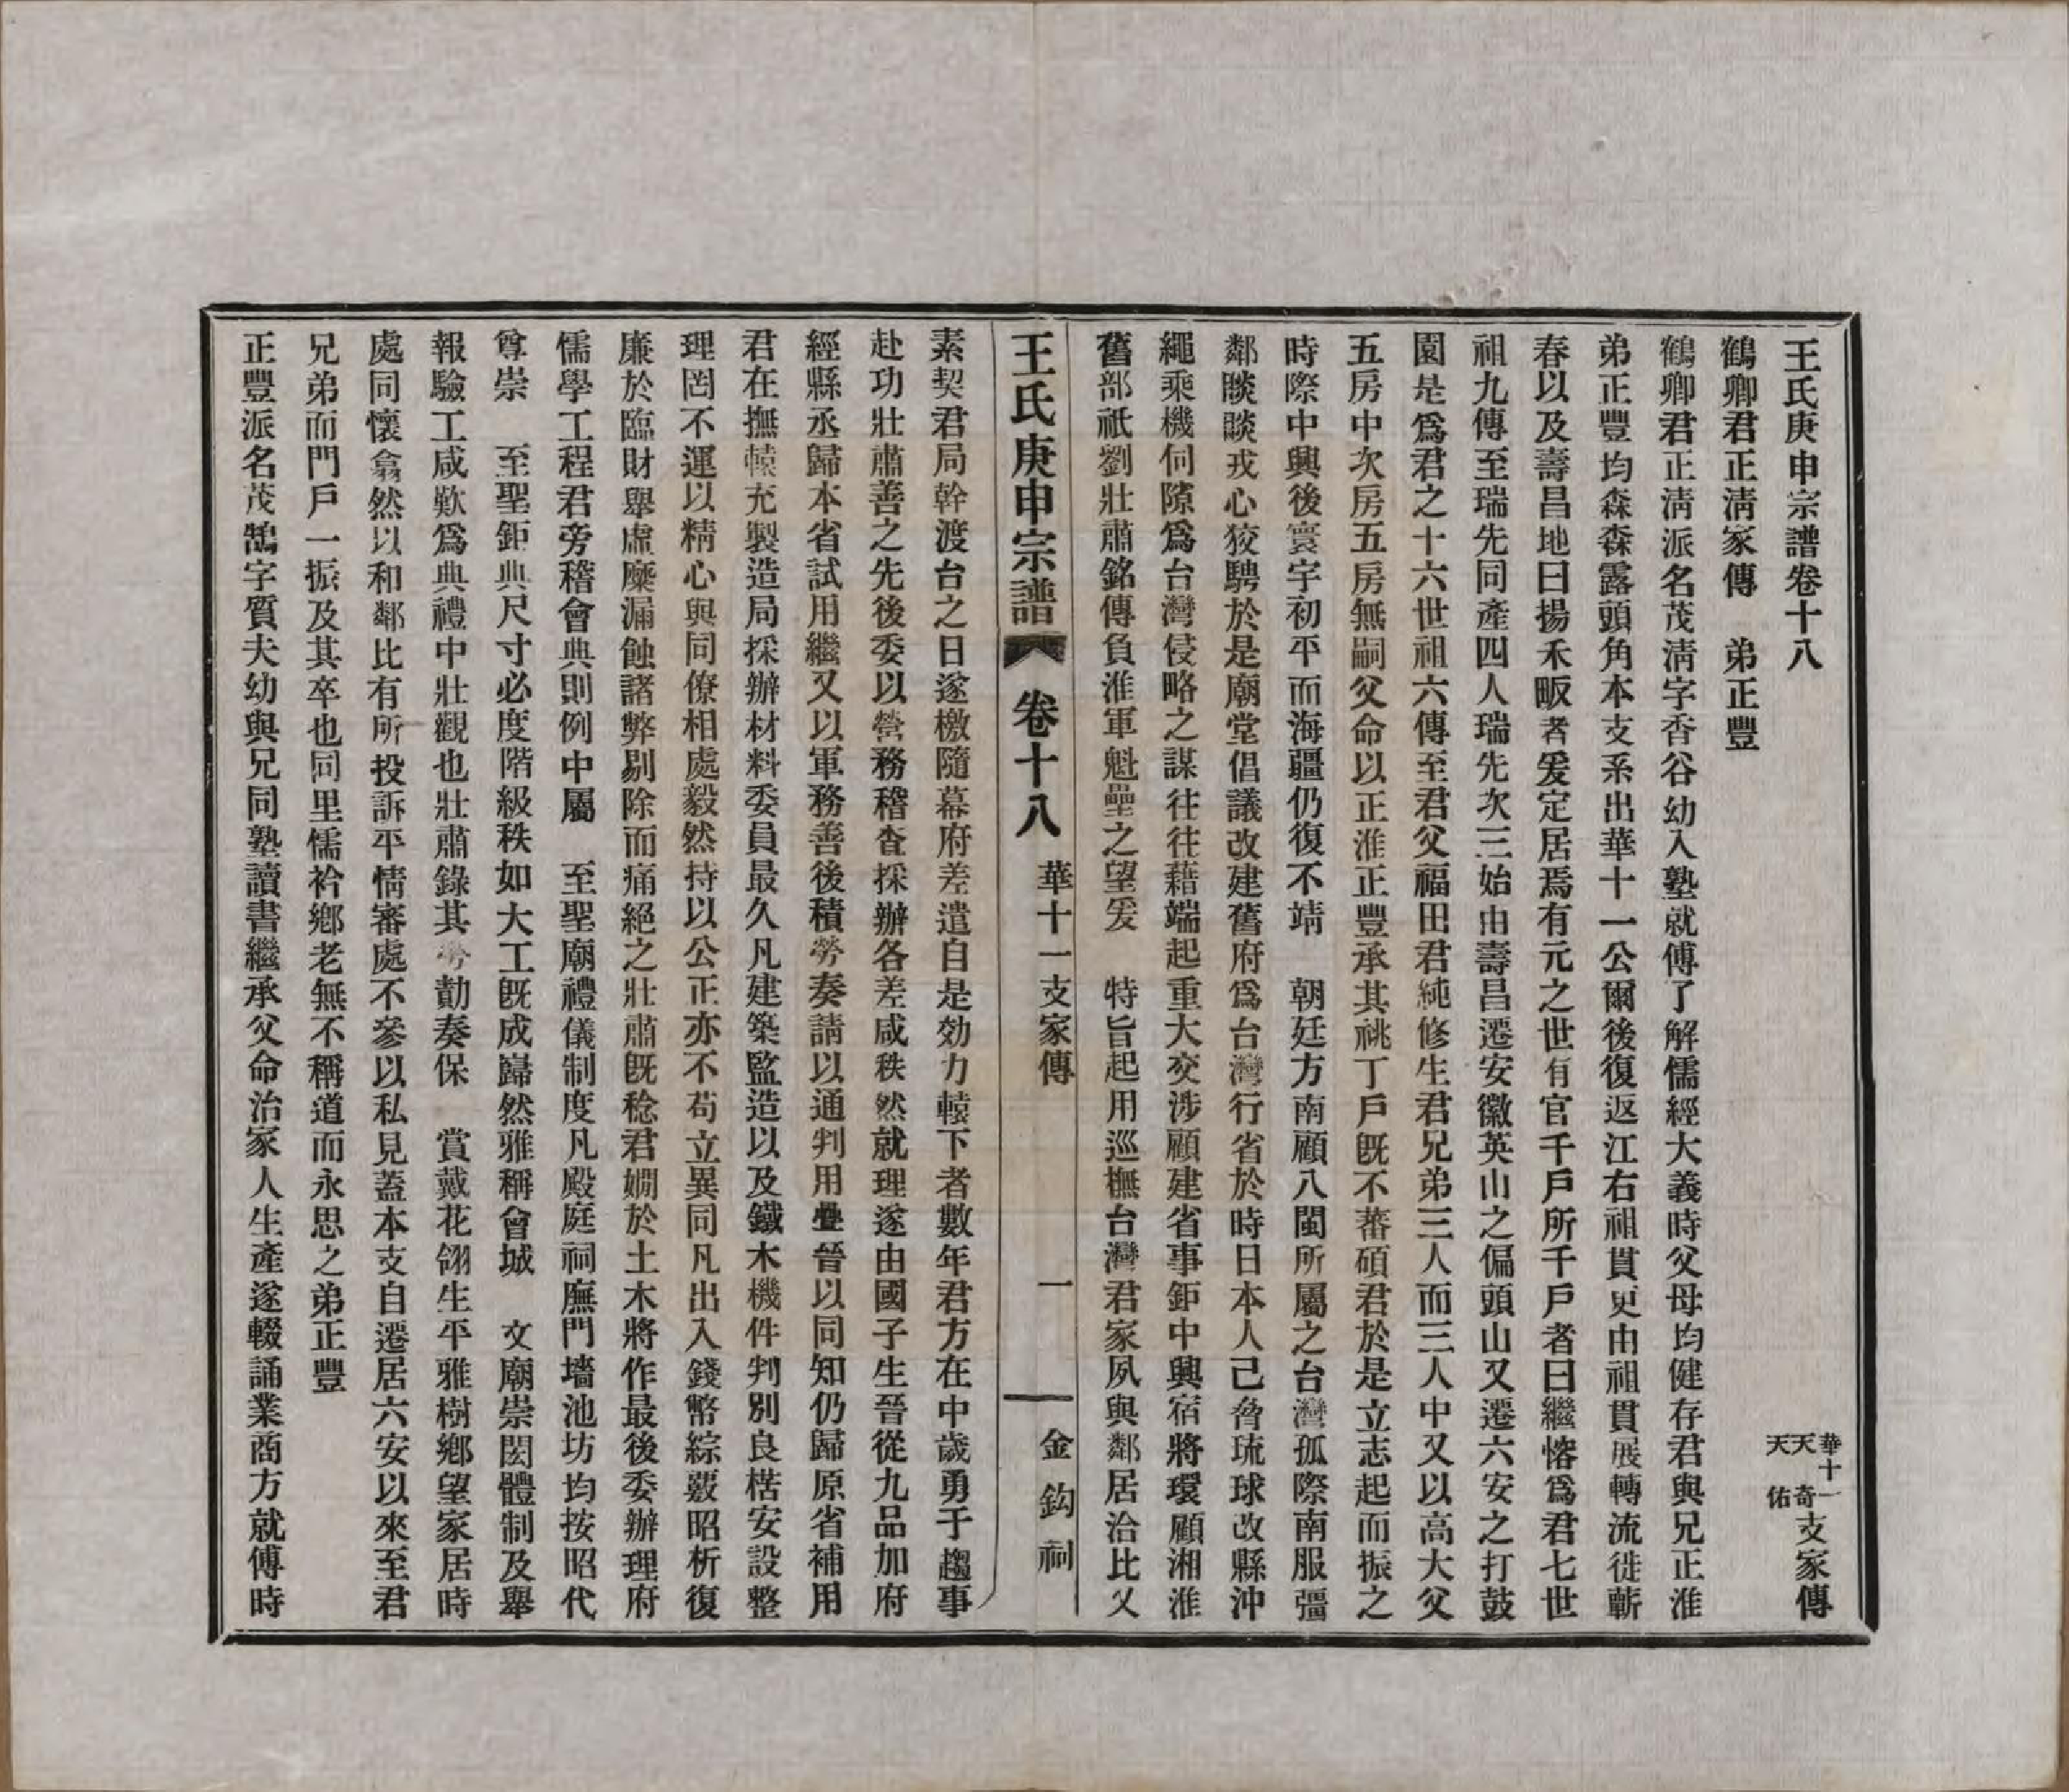 王氏庚申宗譜卷十八
華十一天奇天佑支家傳
鶴卿君正淸家傳　弟正豐
鶴卿君正淸派名茂淸字香谷幼入塾就傅了解儒經大義時父母均健存君與兄正淮
弟正豐均森森露頭角本支系出華十一公爾後復返江右祖貫更由祖貫展轉流徙蘄
春以及壽昌地曰揚禾畈者爰定居焉有元之世有官千戶所千戶者曰繼愹爲君七世
祖九傳至瑞先同產四人瑞先次三始由壽昌遷安徽英山之偏頭山又遷六安之打鼓
園是爲君之十六世祖六傳至君父福田君純修生君兄弟三人而三人中又以高大父
五房中次房五房無嗣父命以正淮正豐承其祧丁戶旣不蕃碩君於是立志起而振之
時際中興後寰宇初平而海疆仍復不靖　朝廷方南顧八閩所屬之台灣孤際南服彊
鄰睒睒戎心狡騁於是廟堂倡議改建舊府爲台灣行省於時日本人已脅琉球改縣沖
繩乘機伺隙爲台灣侵略之謀往往藉端起重大交涉顧建省事鉅中興宿將環顧湘淮
舊部祇劉壯肅銘傳負淮軍魁壘之望爰　特旨起用巡撫台灣君家夙與鄰居洽比又
王氏庚申宗譜　卷十八　華十一支家傳　一　金鈎祠
素契君局幹渡台之日遂檄隨幕府差遣自是効力轅下者數年君方在中歲勇于趨事
赴功壯肅善之先後委以營務稽查採辦各差咸秩然就理遂由國子生晉從九品加府
經縣丞歸本省試用繼又以軍務善後積勞奏請以通判用疊晉以同知仍歸原省補用
君在撫轅充製造局採辦材料委員最久凡建築監造以及鐵木機件判別良楛安設整
理罔不運以精心與同僚相處毅然持以公正亦不苟立異同凡出入錢幣綜覈昭析復
廉於臨財舉虛糜漏蝕諸弊剔除而痛絕之壯肅旣稔君嫺於土木將作最後委辦理府
儒學工程君旁稽會典則例中屬　至聖廟禮儀制度凡殿庭祠廡門墻池坊均按昭代
尊崇　至聖鉅典尺寸必度階級秩如大工旣成巋然雅稱會城　文廟崇閎體制及舉
報驗工咸歎爲典禮中壯觀也壯肅錄其勞勩奏保　賞戴花翎生平雅樹鄉望家居時
處同懷翕然以和鄰比有所投訴平情審處不參以私見蓋本支自遷居六安以來至君
兄弟而門戶一振及其卒也同里儒衿鄉老無不稱道而永思之弟正豐
正豐派名茂鵠字質夫幼與兄同塾讀書繼承父命治家人生產遂輟誦業商方就傅時